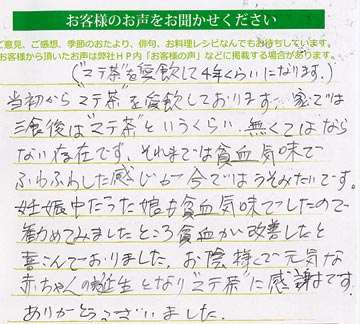 お客様のお声をお聞かせください
ご意見、ご感想、季節のおたより、俳句、お料理レシピなんでもお待ちしています。
お客様から頂いたお声は弊社HP内「お客様の声」などに掲載する場合があります。
("マテ茶"を愛飲して4年くらいになります。)
当初から"マテ茶"を愛飲しております。家では
三食後は"マテ茶"というくらい、無くてはなら
ない存在です。それまでは貧血気味で
ふわふわした感じが今ではうそみたいです。
妊娠中だった娘も貧血気味でしたので
勧めてみましたところ貧血が改善したと
喜んでおりました。お陰様で元気な
赤ちゃんの誕生となり"マテ茶"に感謝です。
ありがとうございました。